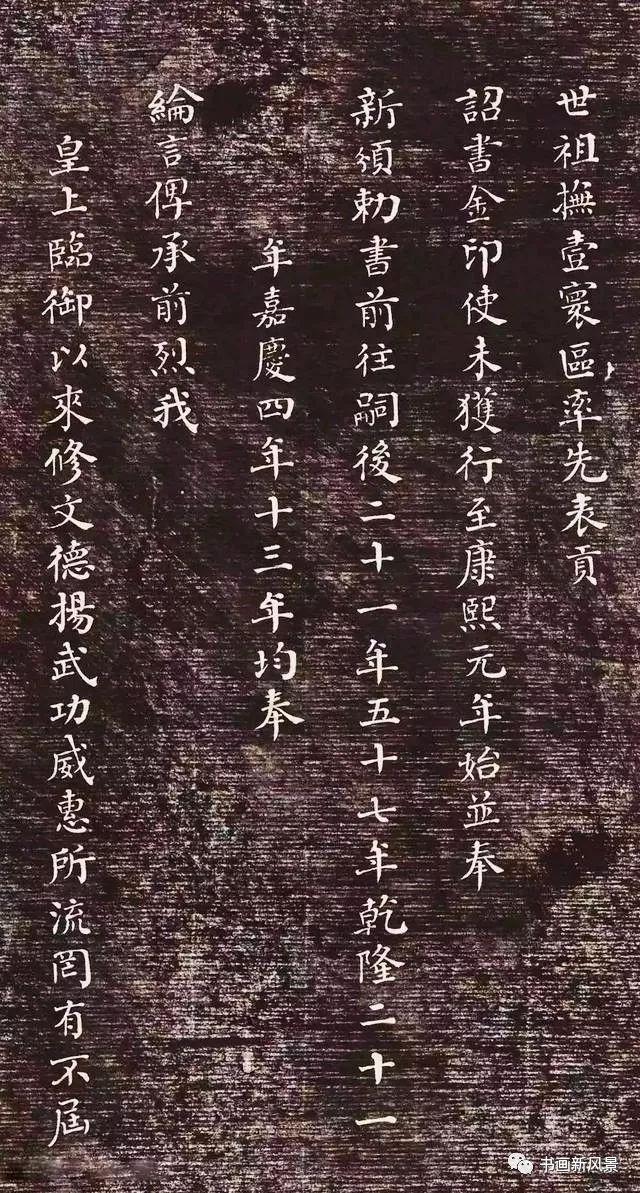 世祖撫壹寰區率先表貢
詔書金印使未獲行至康熙元年始並奉
新頒勅書前往嗣後二十一年五十七年乾隆二十一
年嘉慶四年十三年均奉
綸言俾承前烈我
皇上臨御以來修文德揚武功威惠所流罔有不屆
书画新风景